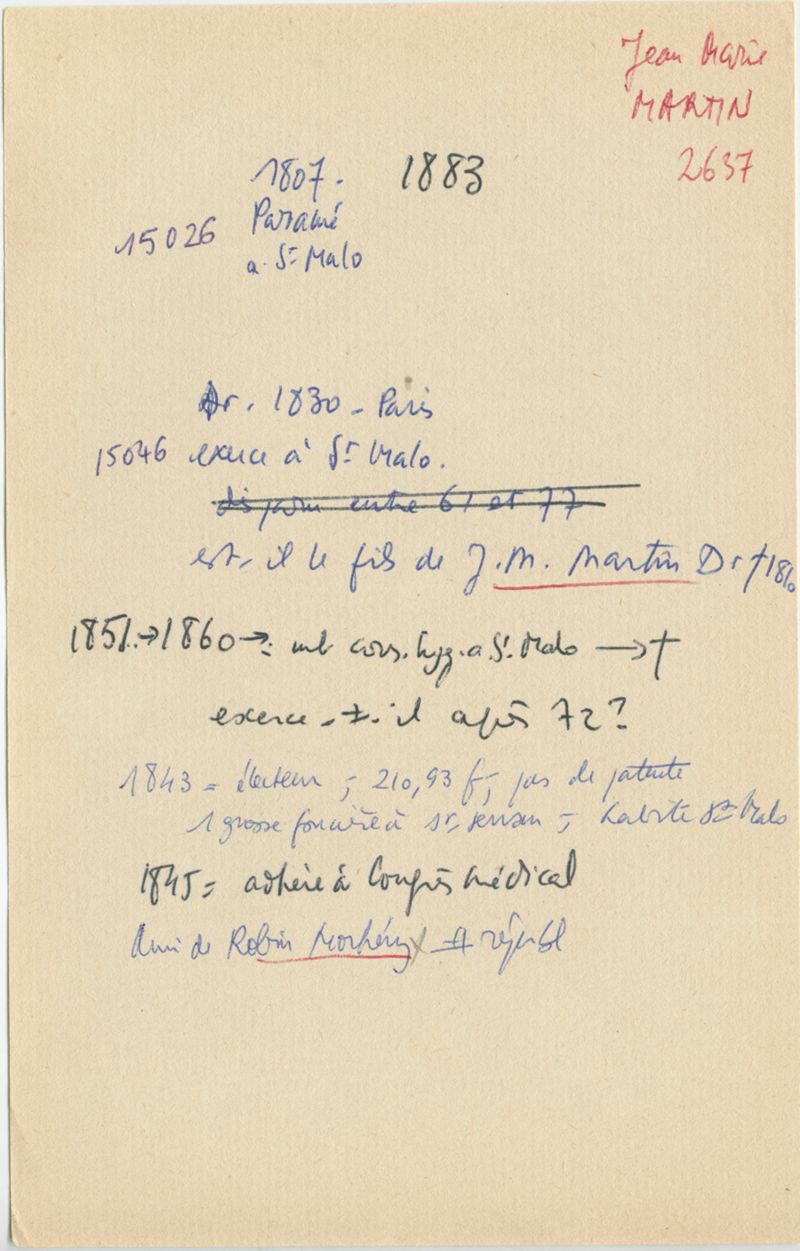 Jean Marie
MARTIN
2637
1807. 1883
15026 Paramé
a St Malo
Dr. 1830 - Paris
15046 exerce à St Malo.
disparu entre 61 et 77
est-il le fils de J.M. Martin Dr †1810
1851.→1860→: mb cons. hyg. a St. Malo →†
exerce-t-il après 72?
1843 = électeur ; 210,93 f ; pas de patente
1 grosse foncière à St. ; habite St Malo
1845 = adhère à Congrès médical
Ami de Robin Morhéry républ